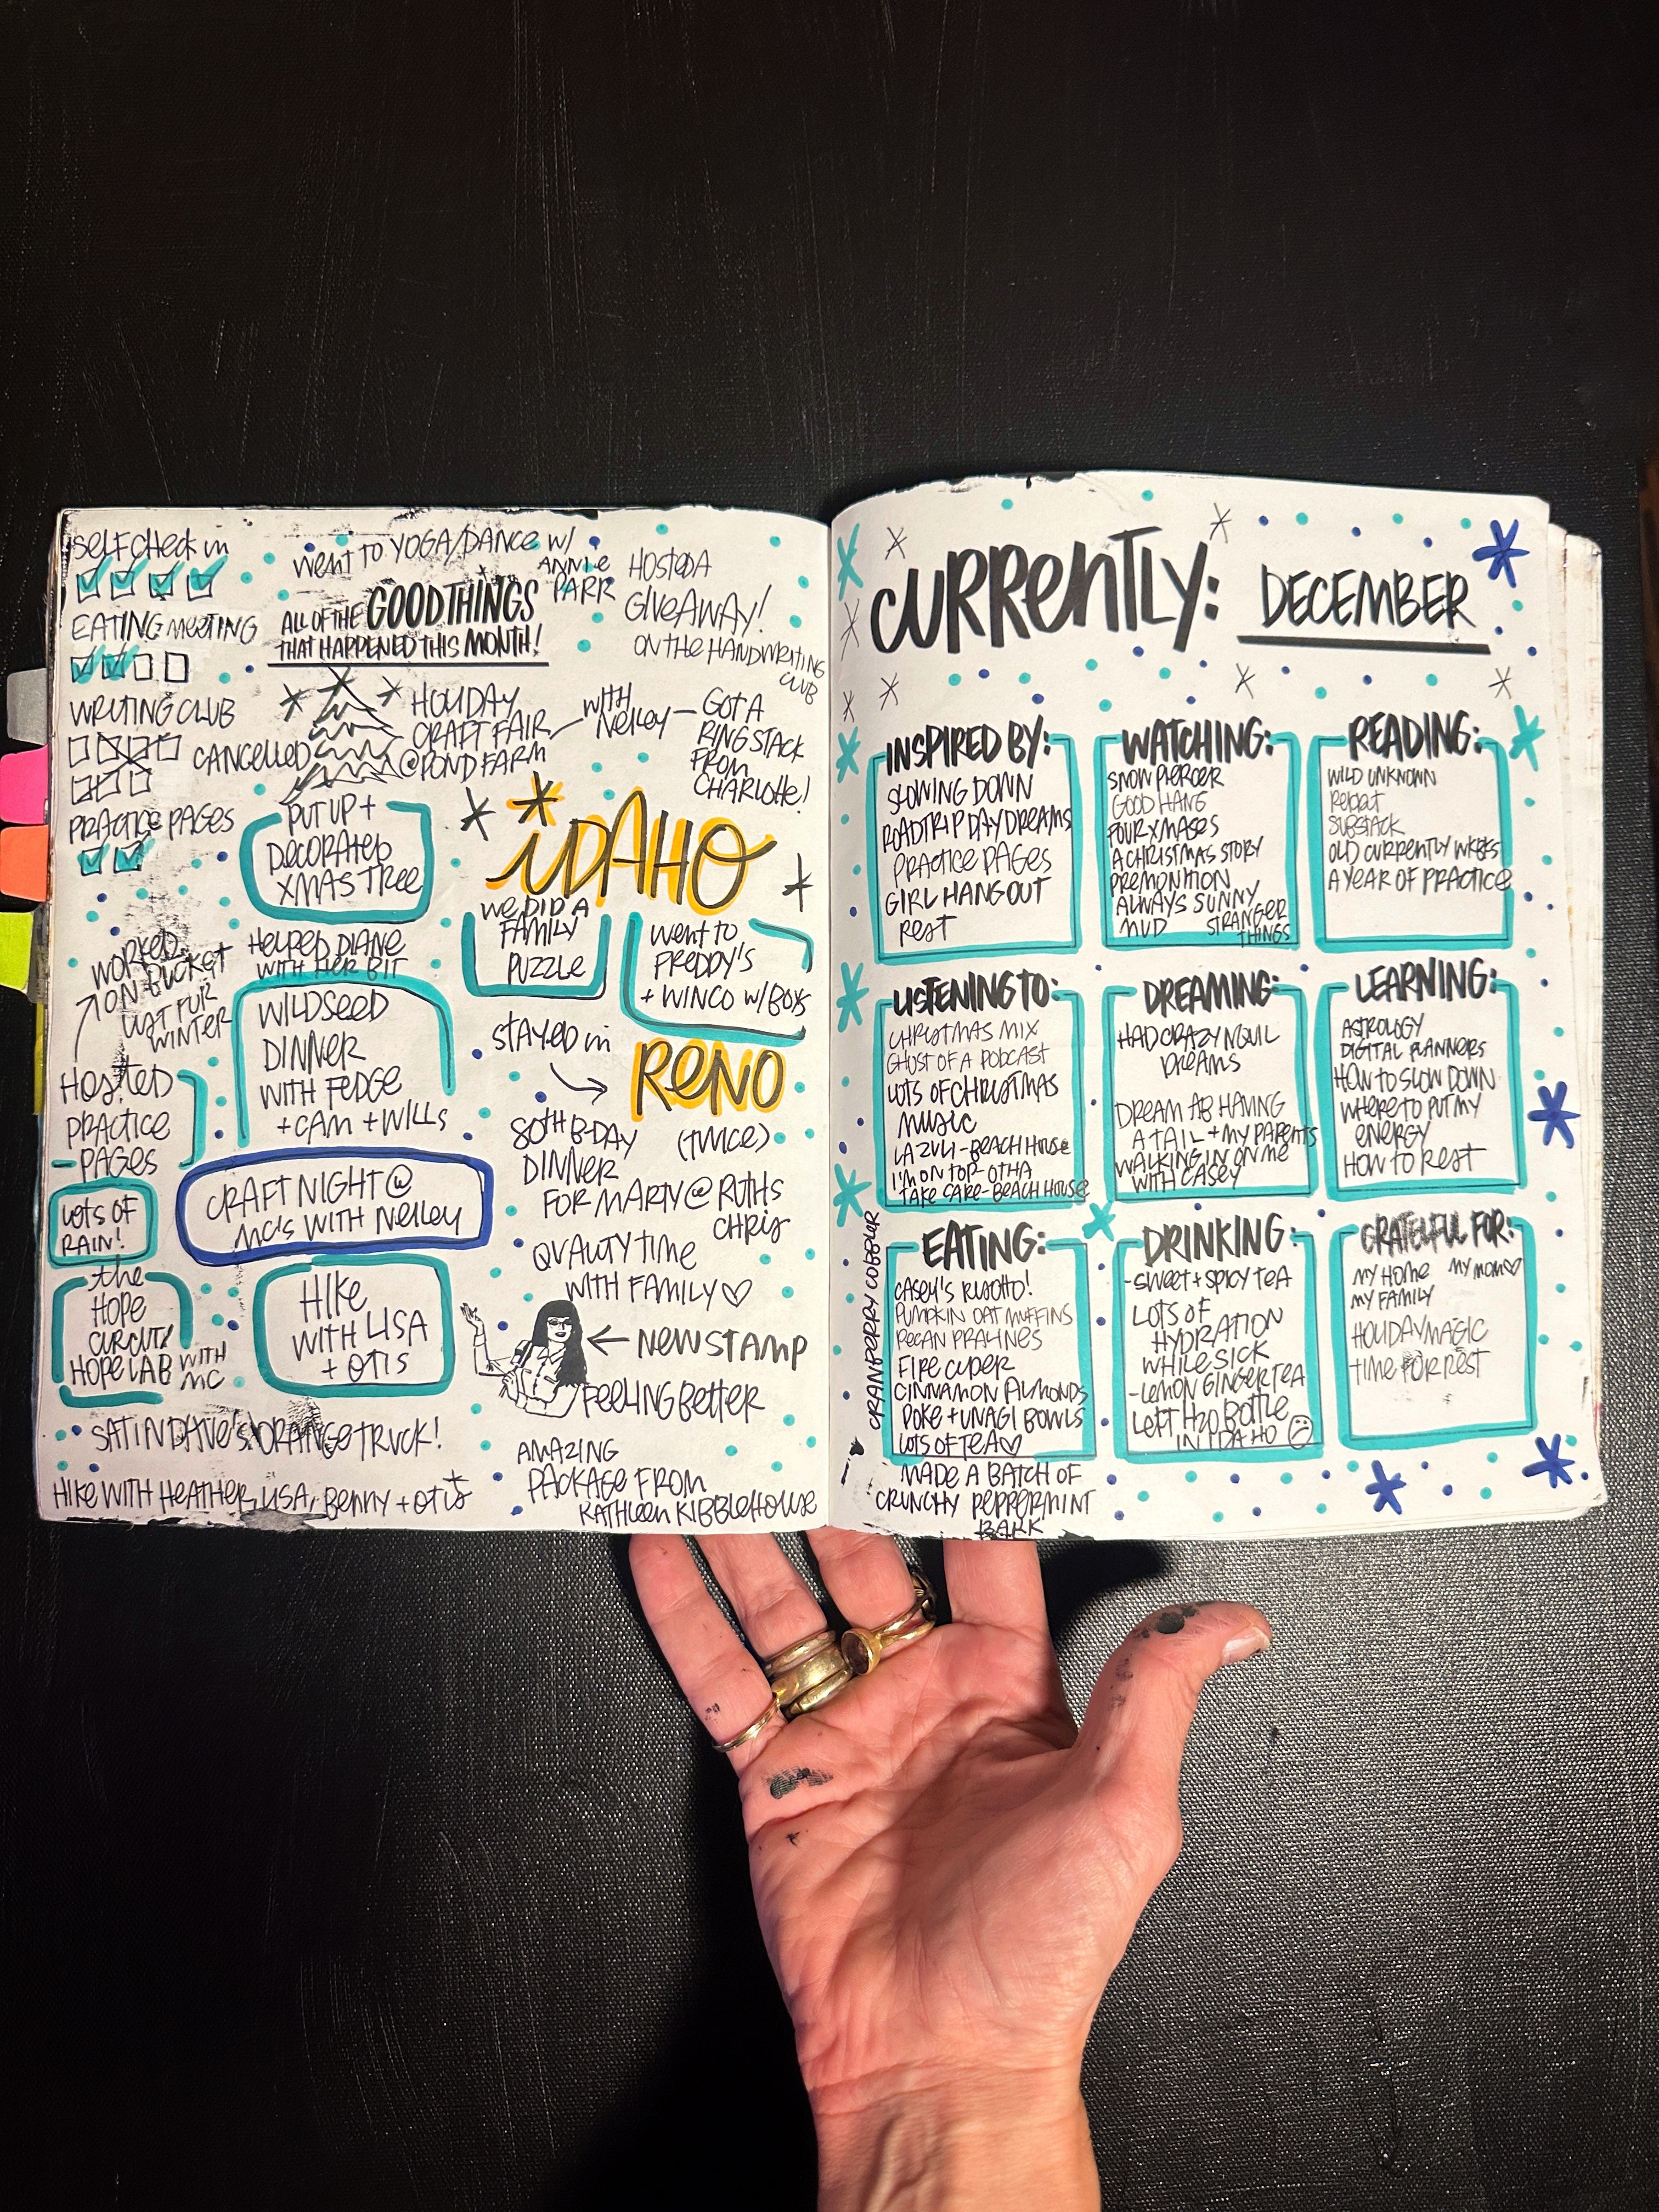 SELF CHECK IN
EATING MEETING
WRITING CLUB
CANCELLED
PRACTICE PAGES
WENT TO YOGA/DANCE W/
ANNIE
PARR
ALL OF THE GOOD THINGS
THAT HAPPENED THIS MONTH!
HOSTED A
GIVEAWAY!
ON THE HANDWRITING
CLUB
HOLIDAY
CRAFT FAIR
@ POND FARM
WITH
NELLEY
GOT A
RING STACK
FROM
CHARLOTTE!
PUT UP +
DECORATED
XMAS TREE
IDAHO
WE DID A
FAMILY
PUZZLE
WENT TO
FREDDY'S
+ WINCO W/ BOYS
WORKED
ON BUCKET
LIST FOR
WINTER
HELPED DIANE
WITH HER BIT
WILDSEED
DINNER
WITH FEDGE
+ CAM + WILLS
STAYED IN
RENO
(TWICE)
HOSTED
PRACTICE
PAGES
80TH B-DAY
DINNER
FOR MARTY @ RUTHS
CHRIS
LOTS OF
RAIN!
CRAFT NIGHT @
MC'S WITH NELLEY
QUALITY TIME
WITH FAMILY
THE
HOPE
CIRCUIT/
HOPE LAB WITH
MC
HIKE
WITH LISA
+ OTIS
NEW STAMP
FEELING BETTER
SAT IN DAVE'S ORANGE TRUCK!
HIKE WITH HEATHER, LISA, BENNY + OTIS
AMAZING
PACKAGE FROM
KATHLEEN KIBBLEHOUSE
CURRENTLY: DECEMBER
INSPIRED BY:
SLOWING DOWN
ROADTRIP DAYDREAMS
PRACTICE PAGES
GIRL HANGOUT
REST
WATCHING:
SNOW PIERCER
GOOD HANG
FOUR XMASES
A CHRISTMAS STORY
PREMONITION
ALWAYS SUNNY
MUD STRANGER
THINGS
READING:
WILD UNKNOWN
SUBSTACK
OLD CURRENTLY WKBKS
A YEAR OF PRACTICE
LISTENING TO:
CHRISTMAS MIX
GHOST OF A PODCAST
LOTS OF CHRISTMAS
MUSIC
LAZULI - BEACH HOUSE
I'M ON TOP - OTHA
TAKE CARE - BEACH HOUSE
DREAMING:
HAD CRAZY NQUIL
DREAMS
DREAM AB HAVING
A TAIL + MY PARENTS
WALKING IN ON ME
WITH CASEY
LEARNING:
ASTROLOGY
DIGITAL PLANNERS
HOW TO SLOW DOWN
WHERE TO PUT MY
ENERGY
HOW TO REST
EATING:
CASEY'S RISOTTO!
PUMPKIN OAT MUFFINS
PECAN PRALINES
FIRE CIDER
CINNAMON ALMONDS
POKE + UNAGI BOWLS
LOTS OF TEA
MADE A BATCH OF
CRUNCHY PEPPERMINT
BARK
CRANBERRY COBBLER
DRINKING:
- SWEET + SPICY TEA
LOTS OF
HYDRATION
WHILE SICK
- LEMON GINGER TEA
LEFT H2O BOTTLE
IN IDAHO
GRATEFUL FOR:
MY HOME MY MOM
MY FAMILY
HOLIDAY MAGIC
TIME FOR REST